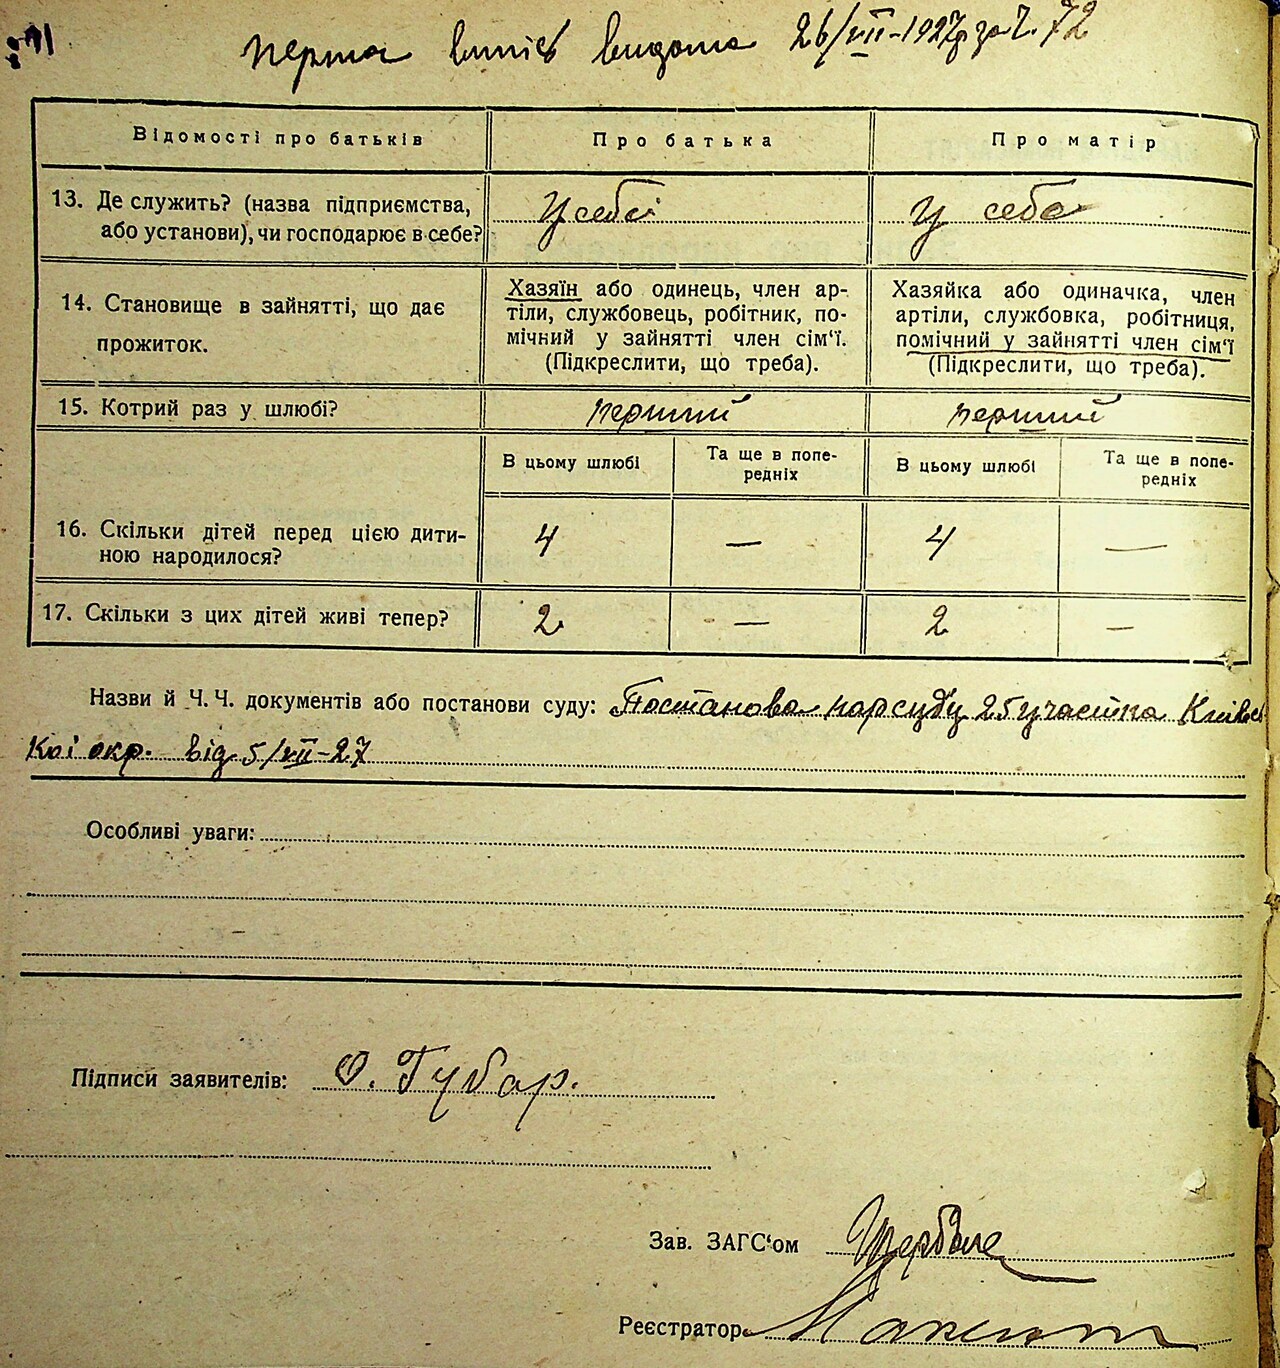 перша випись видана 26/VII-1927р за ч. 72
Відомості про батьків
Про батька
Про матір
13. Де служить? (назва підприємства,
або установи), чи господарює в себе?
У себе
У себе
14. Становище в зайнятті, що дає
прожиток.
Хазяїн або одинець, член ар-
тіли, службовець, робітник, по-
мічний у зайнятті член сім'ї.
(Підкреслити, що треба).
Хазяйка або одиначка, член
артіли, службовка, робітниця,
помічний у зайнятті член сім'ї
(Підкреслити, що треба).
15. Котрий раз у шлюбі?
перший
перший
В цьому шлюбі
Та ще в попе-
редніх
В цьому шлюбі
Та ще в попе-
редніх
16. Скільки дітей перед цією дити-
ною народилося?
4
—
4
—
17. Скільки з цих дітей живі тепер?
2
—
2
—
Назви й Ч. Ч. документів або постанови суду: Постанова нарсуду 25 участка Київсь
кої окр. від 5/VII-27
Особливі уваги:
Підписи заявителів: О. Губар.
Зав. ЗАГС'ом
Реєстратор